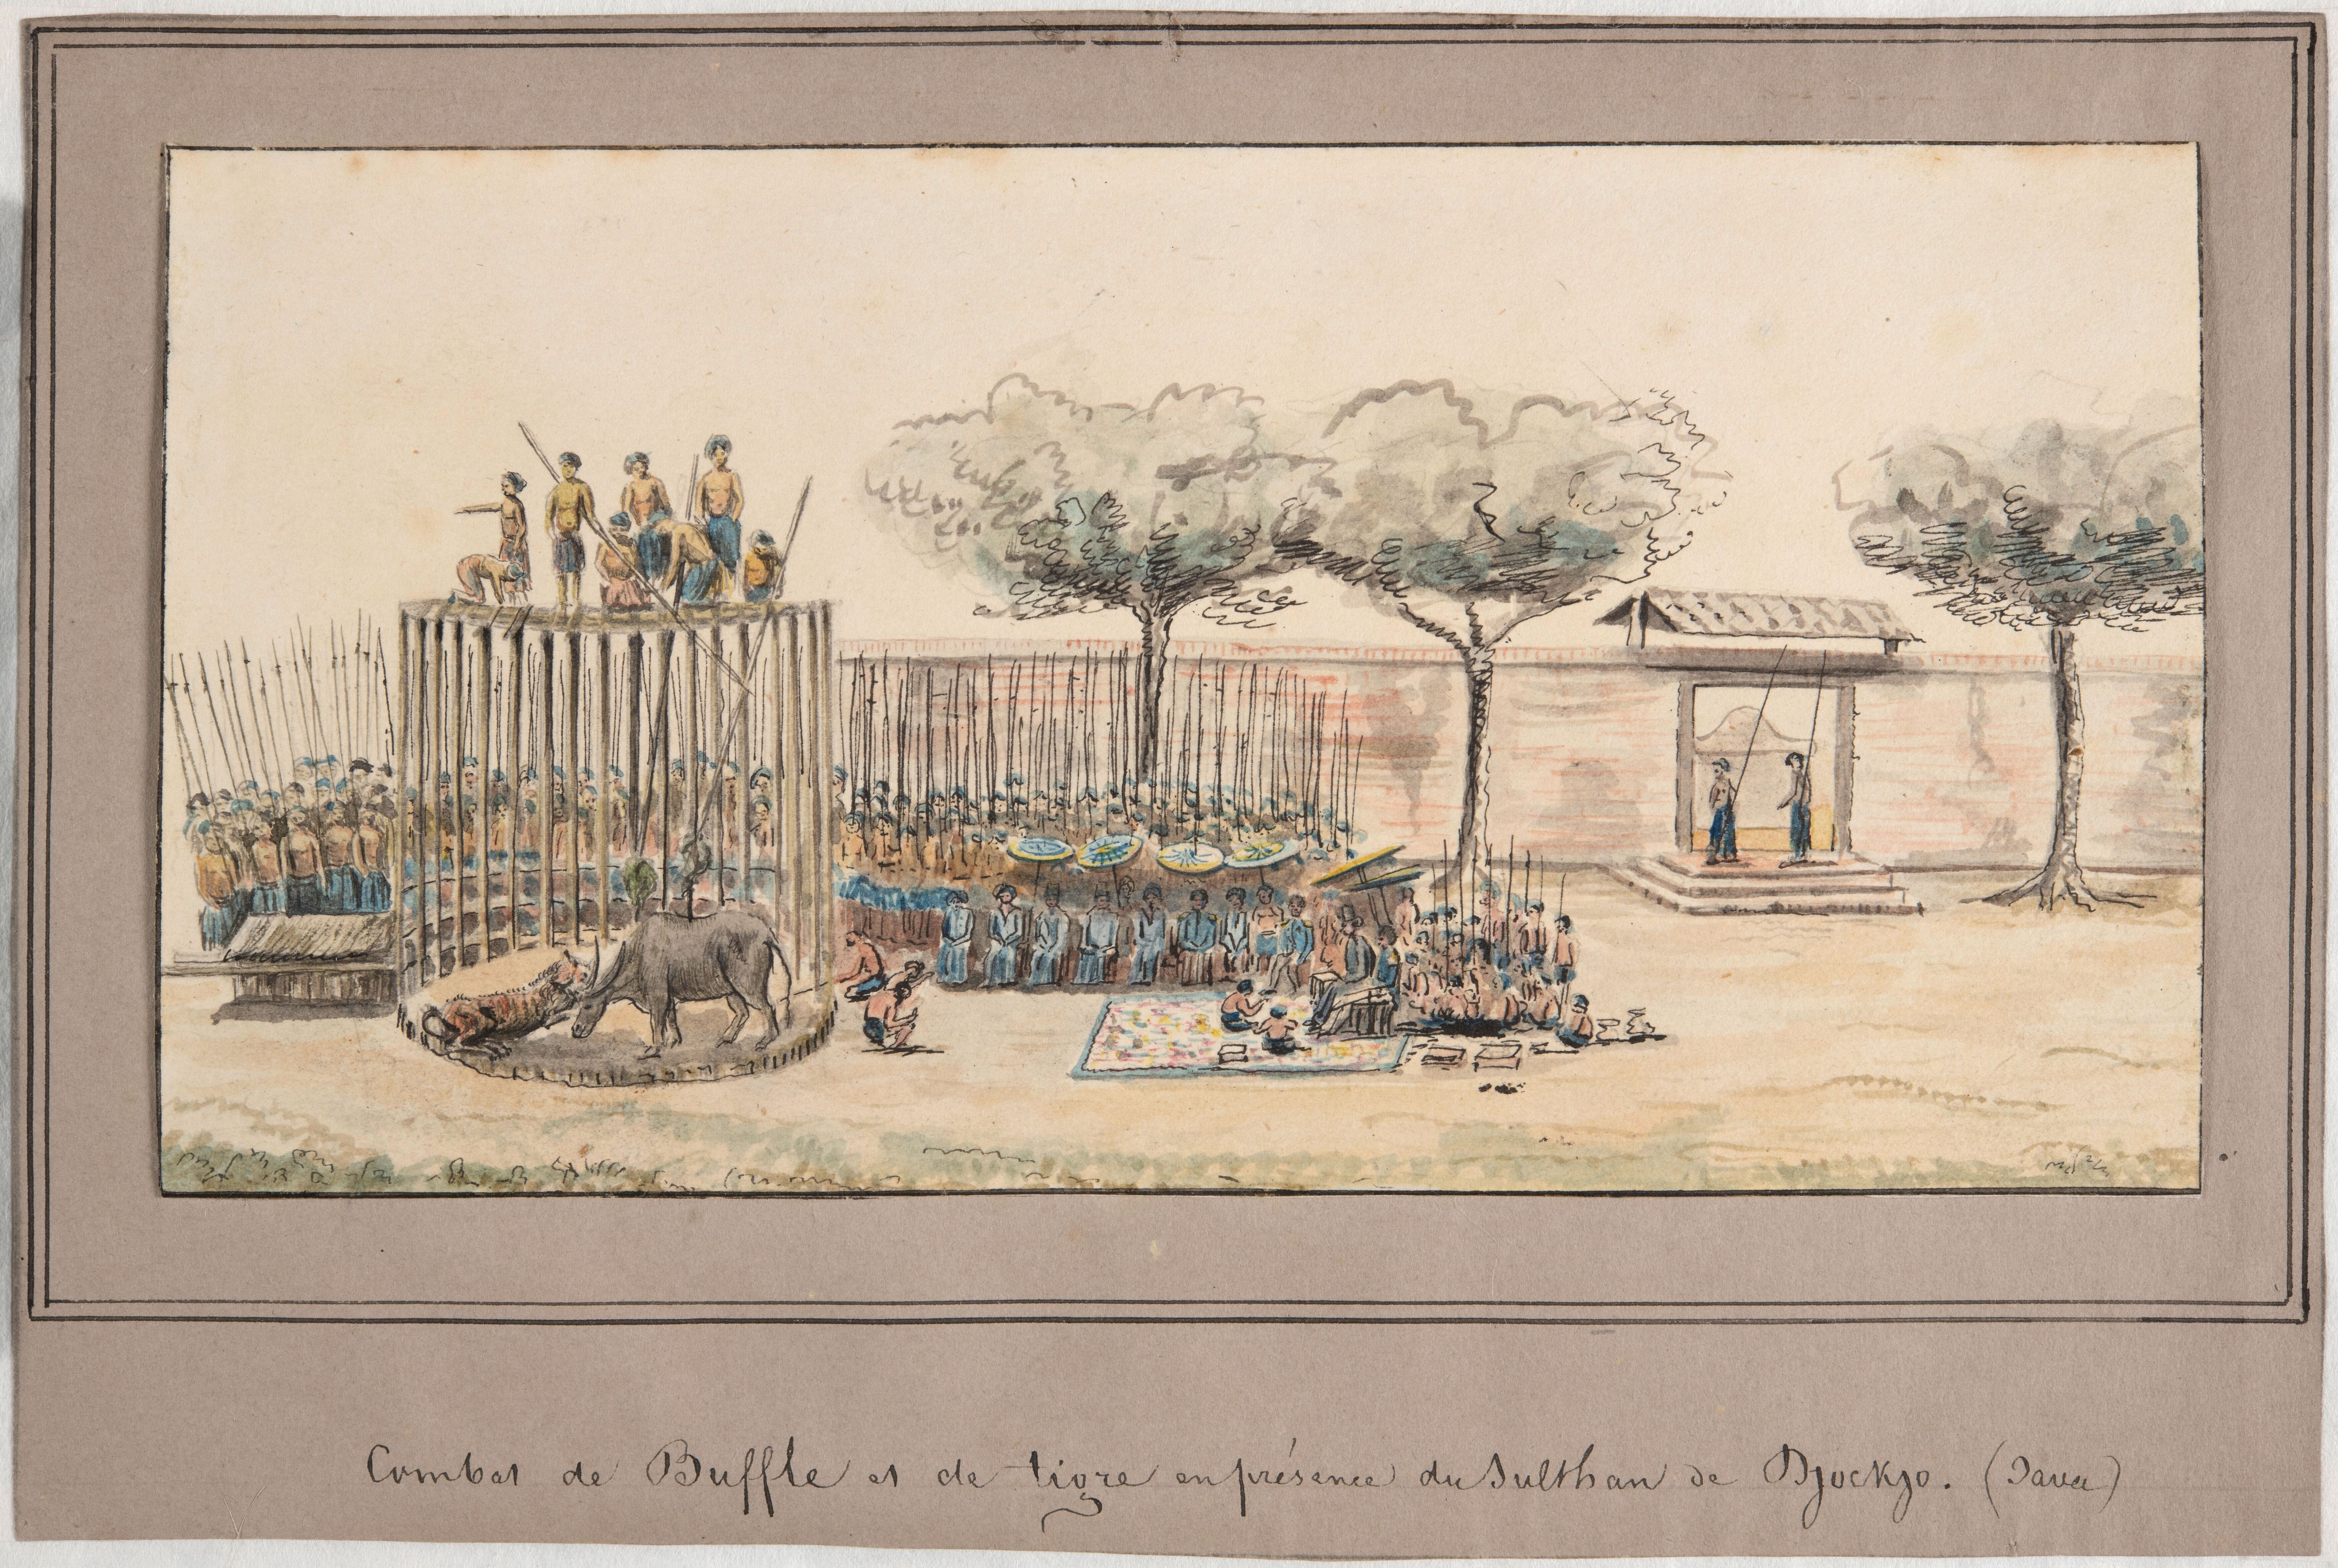 Combat de Buffle et de tigre en présence du Sulthan de Djockjo. (Java)